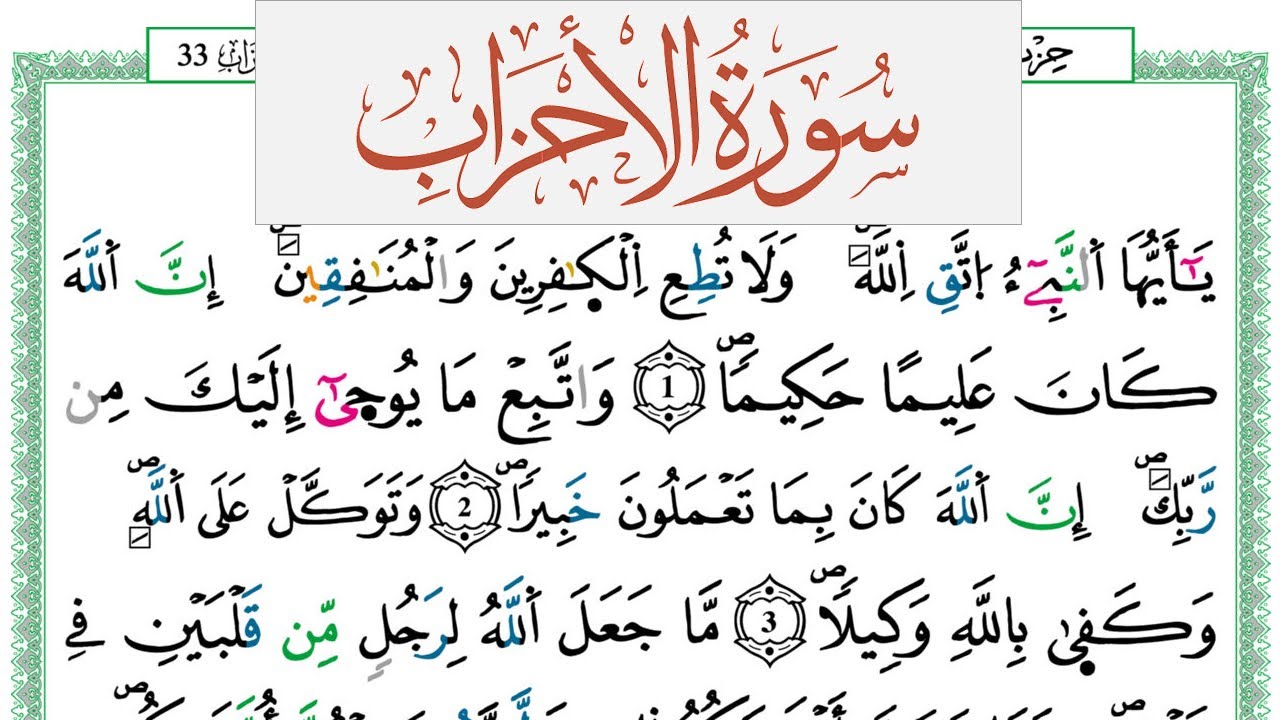 حِزْب
33
سُورَةُ الأَحْزَابِ
يَٰٓأَيُّهَا اَ۬لنَّبِےٓءُ اِ۪تَّقِ اِ۬للَّهَۖ وَلَا تُطِعِ اِ۬لْكٰ۪فِرِينَ وَالْمُنَٰفِقِينَۖ إِنَّ اَ۬للَّهَ
كَانَ عَلِيماً حَكِيماٗۖ 1 وَاتَّبِعْ مَا يُوح۪يٰٓ إِلَيْكَ مِن
رَّبِّكَۖ إِنَّ اَ۬للَّهَ كَانَ بِمَا تَعْمَلُونَ خَبِيراٗۖ 2 وَتَوَكَّلْ عَلَي اَ۬للَّهِۖ
وَكَف۪يٰ بِاللَّهِ وَكِيلاٗۖ 3 مَّا جَعَلَ اَ۬للَّهُ لِرَجُلٖ مِّن قَلْبَيْنِ فِے